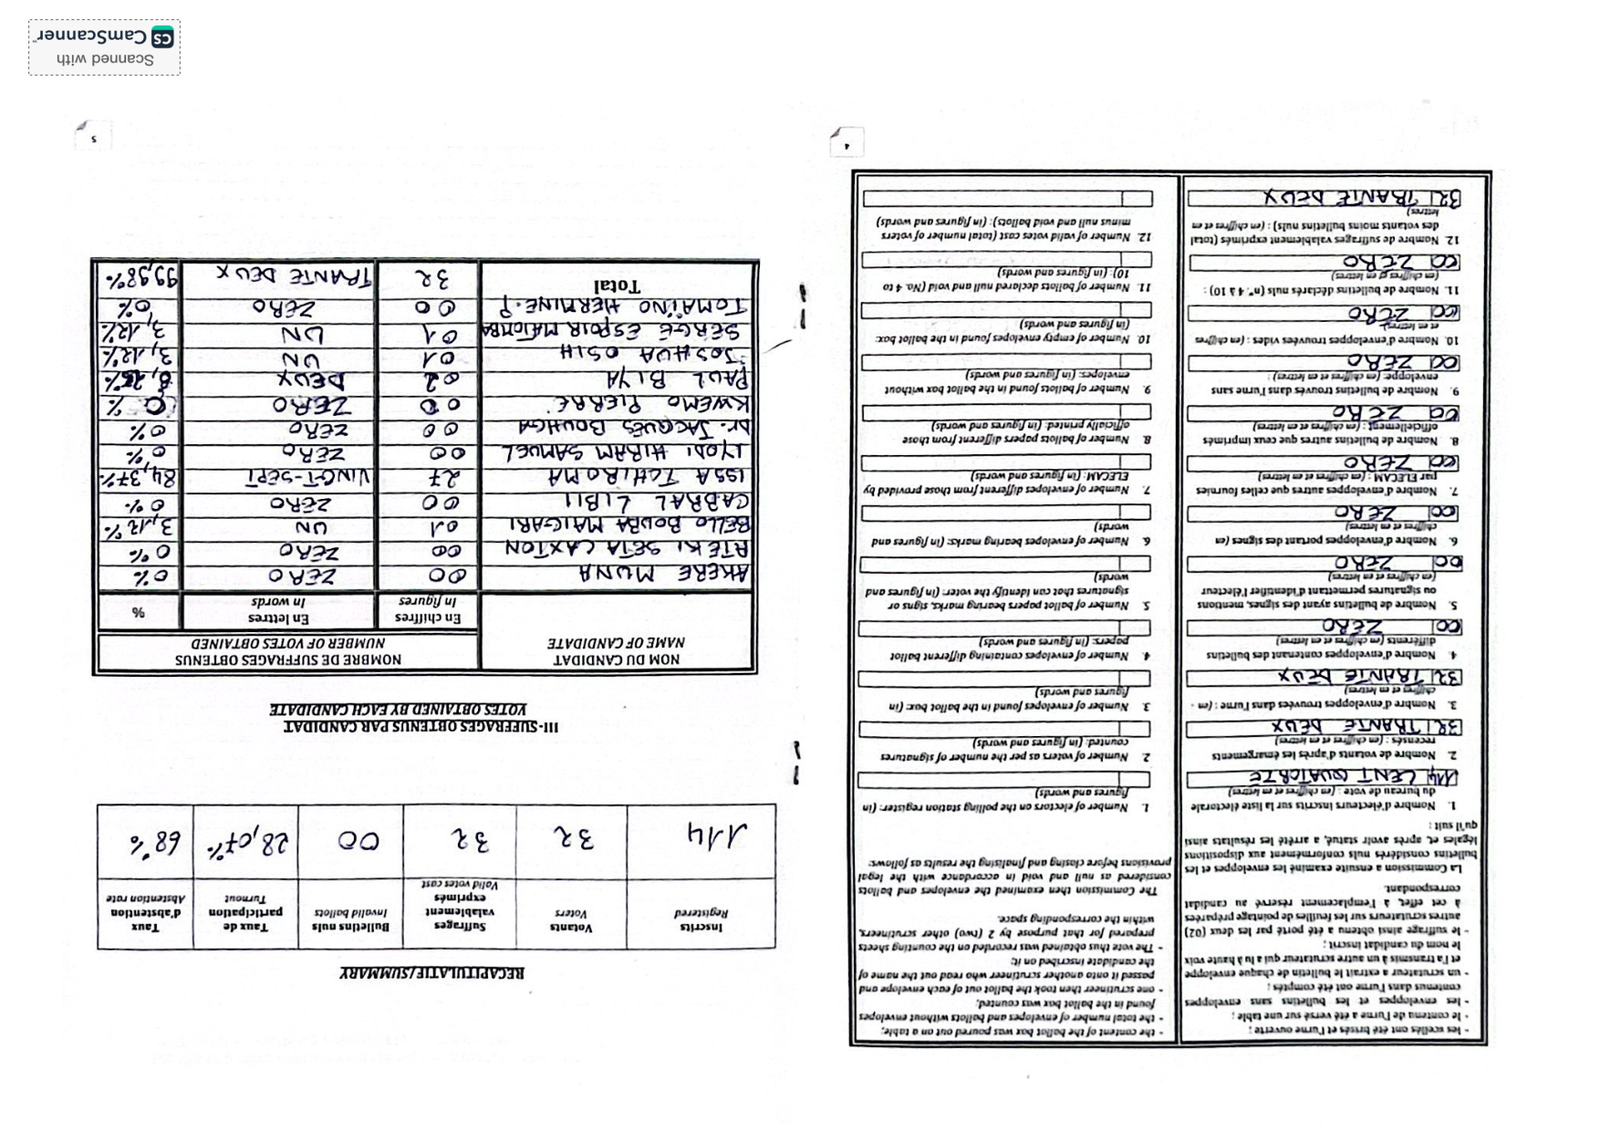 - les scellés ont été brisés et l'urne ouverte ;
- le contenu de l'urne a été versé sur une table ;
- les enveloppes et les bulletins sans enveloppes
contenus dans l'urne ont été comptés ;
- un scrutateur a extrait le bulletin de chaque enveloppe
et l'a transmis à un autre scrutateur qui a lu à haute voix
le nom du candidat inscrit ;
- le suffrage ainsi obtenu a été porté par les deux (02)
autres scrutateurs sur les feuilles de pointage préparées
à cet effet, à l'emplacement réservé au candidat
correspondant.
La Commission a ensuite examiné les enveloppes et les
bulletins considérés nuls conformément aux dispositions
légales et, après avoir statué, a arrêté les résultats ainsi
qu'il suit :
1. Nombre d'électeurs inscrits sur la liste électorale
du bureau de vote : (en chiffres et en lettres)
114 CENT QUATORTE
2. Nombre de votants d'après les émargements
recensés : (en chiffres et en lettres)
32 TRANTE DEUX
3. Nombre d'enveloppes trouvées dans l'urne : (en
chiffres et en lettres)
32 TRANTE DEUX
4. Nombre d'enveloppes contenant des bulletins
différents (en chiffres et en lettres)
00 ZERO
5. Nombre de bulletins ayant des signes, mentions
ou signatures permettant d'identifier l'électeur
(en chiffres et en lettres)
00 ZERO
6. Nombre d'enveloppes portant des signes (en
chiffres et en lettres)
00 ZERO
7. Nombre d'enveloppes autres que celles fournies
par ELECAM : (en chiffres et en lettres)
00 ZERO
8. Nombre de bulletins autres que ceux imprimés
officiellement : (en chiffres et en lettres)
00 ZERO
9. Nombre de bulletins trouvés dans l'urne sans
enveloppe: (en chiffres et en lettres) :
00 ZERO
10. Nombre d'enveloppes trouvées vides : (en chiffres
et en lettres)
00 ZERO
11. Nombre de bulletins déclarés nuls (n°. 4 à 10) :
(en chiffres et en lettres)
00 ZERO
12. Nombre de suffrages valablement exprimés (total
des votants moins bulletins nuls) : (en chiffres et en
lettres)
32 TRANTE DEUX
- the content of the ballot box was poured out on a table;
- the total number of envelopes and ballots without envelopes
found in the ballot box was counted;
- one scrutineer then took the ballot out of each envelope and
passed it onto another scrutineer who read out the name of
the candidate inscribed on it;
- The vote thus obtained was recorded on the counting sheets
prepared for that purpose by 2 (two) other scrutineers,
within the corresponding space.
The Commission then examined the envelopes and ballots
considered as null and void in accordance with the legal
provisions before closing and finalising the results as follows:
1. Number of electors on the polling station register: (in
figures and words)
2. Number of voters as per the number of signatures
counted: (in figures and words)
3. Number of envelopes found in the ballot box: (in
figures and words)
4. Number of envelopes containing different ballot
papers: (in figures and words)
5. Number of ballot papers bearing marks, signs or
signatures that can identify the voter: (in figures and
words)
6. Number of envelopes bearing marks: (in figures and
words)
7. Number of envelopes different from those provided by
ELECAM: (in figures and words)
8. Number of ballots papers different from those
officially printed: (in figures and words)
9. Number of ballots found in the ballot box without
envelopes: (in figures and words)
10. Number of empty envelopes found in the ballot box:
(in figures and words)
11. Number of ballots declared null and void (No. 4 to
10): (in figures and words)
12. Number of valid votes cast (total number of voters
minus null and void ballots): (in figures and words)
4
RECAPITULATIF/SUMMARY
Inscrits Registered Votants Voters Suffrages valablement exprimés Valid votes cast Bulletins nuls Invalid ballots Taux de participation Turnout Taux d'abstention Abstention rate
114 32 32 00 28,07% 68%
III- SUFFRAGES OBTENUS PAR CANDIDAT
VOTES OBTAINED BY EACH CANDIDATE
NOM DU CANDIDAT NOMBRE DE SUFFRAGES OBTENUS
NAME OF CANDIDATE NUMBER OF VOTES OBTAINED
En chiffres En lettres %
In figures In words
AKERE MUNA 00 ZERO 0%
ATEKI SETA CAXTON 00 ZERO 0%
BELLO BOUBA MAIGARI 01 UN 3,12%
CABRAL LIBII 00 ZERO 0%
ISSA TCHIROMA 27 VINGT-SEPT 84,37%
LYODI HIRAM SAMUEL 00 ZERO 0%
Dr. JACQUES BOUHGA 00 ZERO 0%
KWEMO PIERRE 00 ZERO 0%
PAUL BIYA 02 DEUX
JOSHUA OSIH 01 UN 3,12%
SERGE ESPOIR MATOMBA 01 UN 3,12%
TOMAÏNO HERMINE.P 00 ZERO 0%
Total 32 TRANTE DEUX 99,98%
5
Scanned with
CS CamScanner